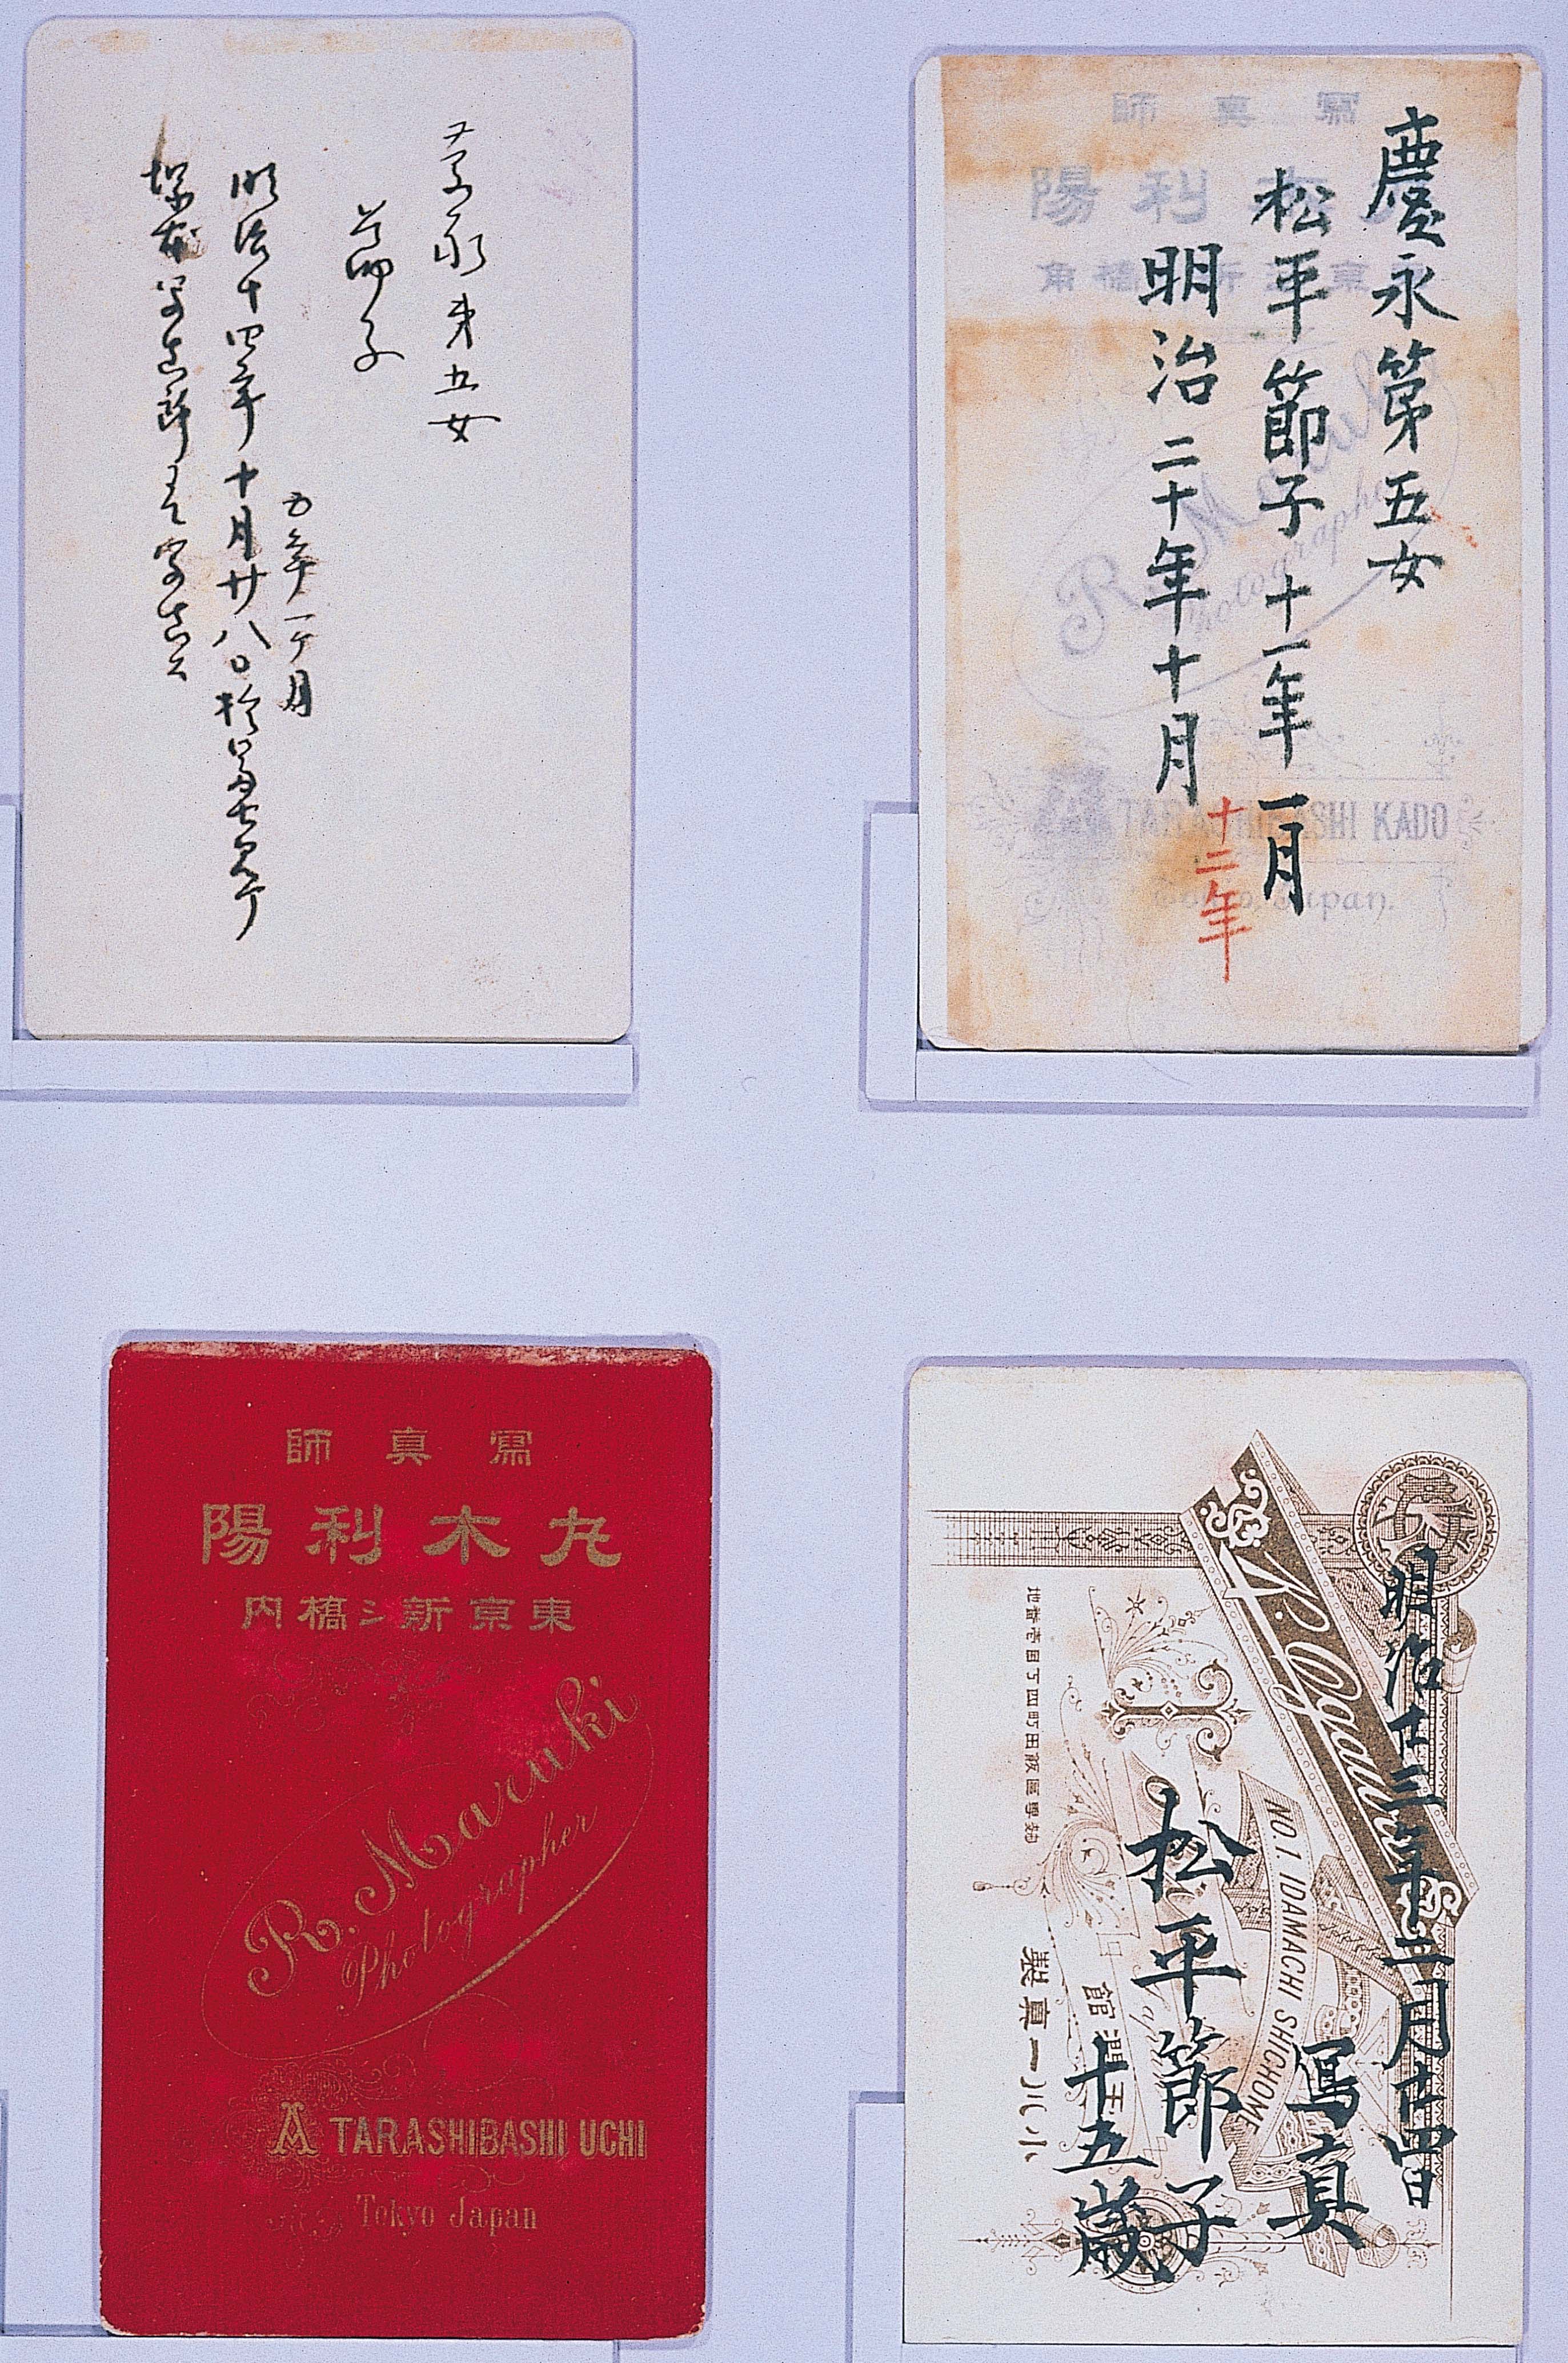 慶永第五女
節子
五年一ケ月
明治十四年十月廿八日於
慶永第五女
松平節子十一年一月
明治二十年十月
十二年
師真寫
陽利
TARASHIBASHI KADO
Tokyo, Japan.
R. Maruki
Photographer
師真寫
陽利木丸
内橋シ新京東
R. Maruki
Photographer
ATARASHIBASHI UCHI
Tokyo Japan
明治廿三年二月廿四日
寫真
松平節子
十五歳
K. Ogawa
NO. 1. IDAMACHI SHICHOME
地番壱目丁四町田飯區町麴
製真一川小
館潤玉